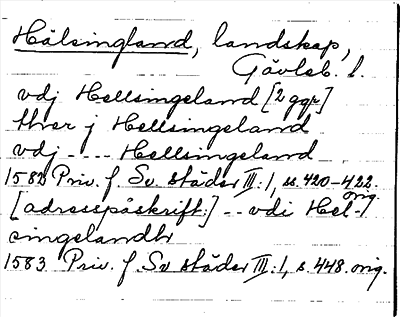 Hälsingland, landskap,
Gävleb. l.
vdj Hellsingeland [2 ggr]
thver j Hellsingeland
vdj ---- Hellsingeland
1582 Priv. f. Sv städer III:1, ss. 420-422.
orig.
[adresspåskrift:] -- vdi Hel-
singelandhr
1583 Priv. f. Sv städer III:1, s. 448. orig.